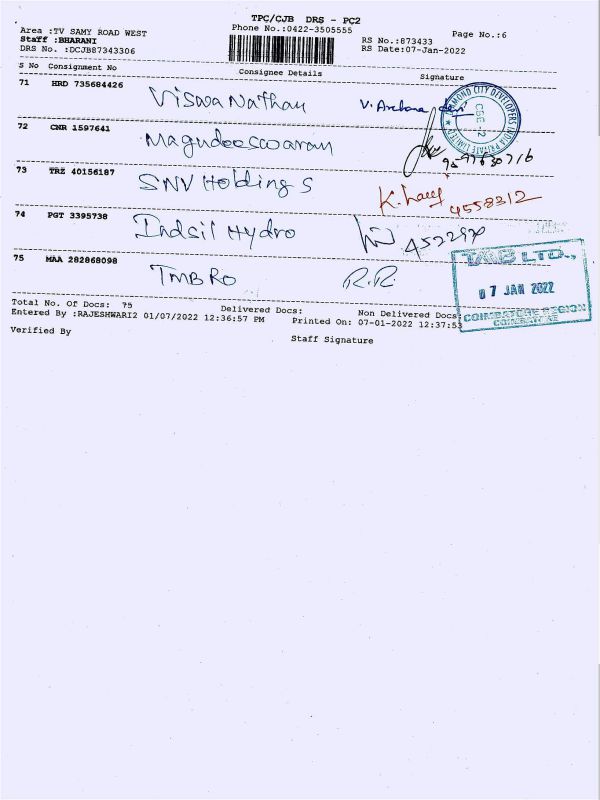 TPC/CJB DRS - PC2
Area :TV SAMY ROAD WEST Phone No.:0422-3505555 Page No.:6
Staff :BHARANI RS No.:873433
DRS No. :DCJB87343306 RS Date:07-Jan-2022
S No Consignment No Consignee Details Signature
71 HRD 735684426 Viswa Nathan V. Archana
DIAMOND CITY DEVELOPERS INDIA PRIVATE LIMITED
CBE-2
72 CNR 1597641 Magudeeswaran
73 TRZ 40156187 SNV Holdings 4558312
74 PGT 3395738 Indsil Hydro
75 MAA 282868098 TMB RO R.R.
TMB LTD.,
07 JAN 2022
COIMBATORE REGION
COIMBATORE
Total No. Of Docs: 75 Delivered Docs: Non Delivered Docs:
Entered By :RAJESHWARI2 01/07/2022 12:36:57 PM Printed On: 07-01-2022 12:37:53
Verified By Staff Signature